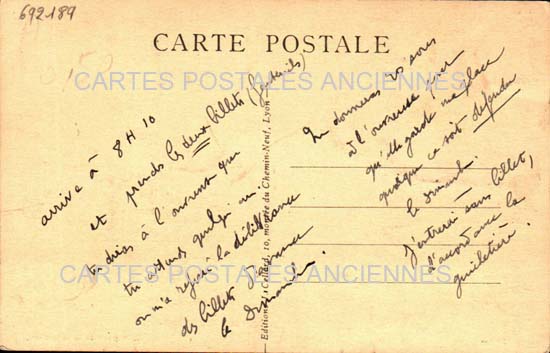 692189
CARTE POSTALE
CARTES POSTALES ANCIENNES
arrive à 8 H 10
et prends les deux billets (fauteuils)
tu diras à l'ouvreuse que
tu attends quelqu'un
on m'a refusé la délivrance
des billets d'avance
le Dimanche.
Editions J. Cellard, 10, montée du Chemin-Neuf, Lyon
Tu donneras 20 sous
à l'ouvreuse pour
qu'elle garde ma place
quoique ce soit défendu
le dimanche.
J'entrerai sans billet,
d'accord avec la
guichetière.
CARTES POSTALES ANCIENNES